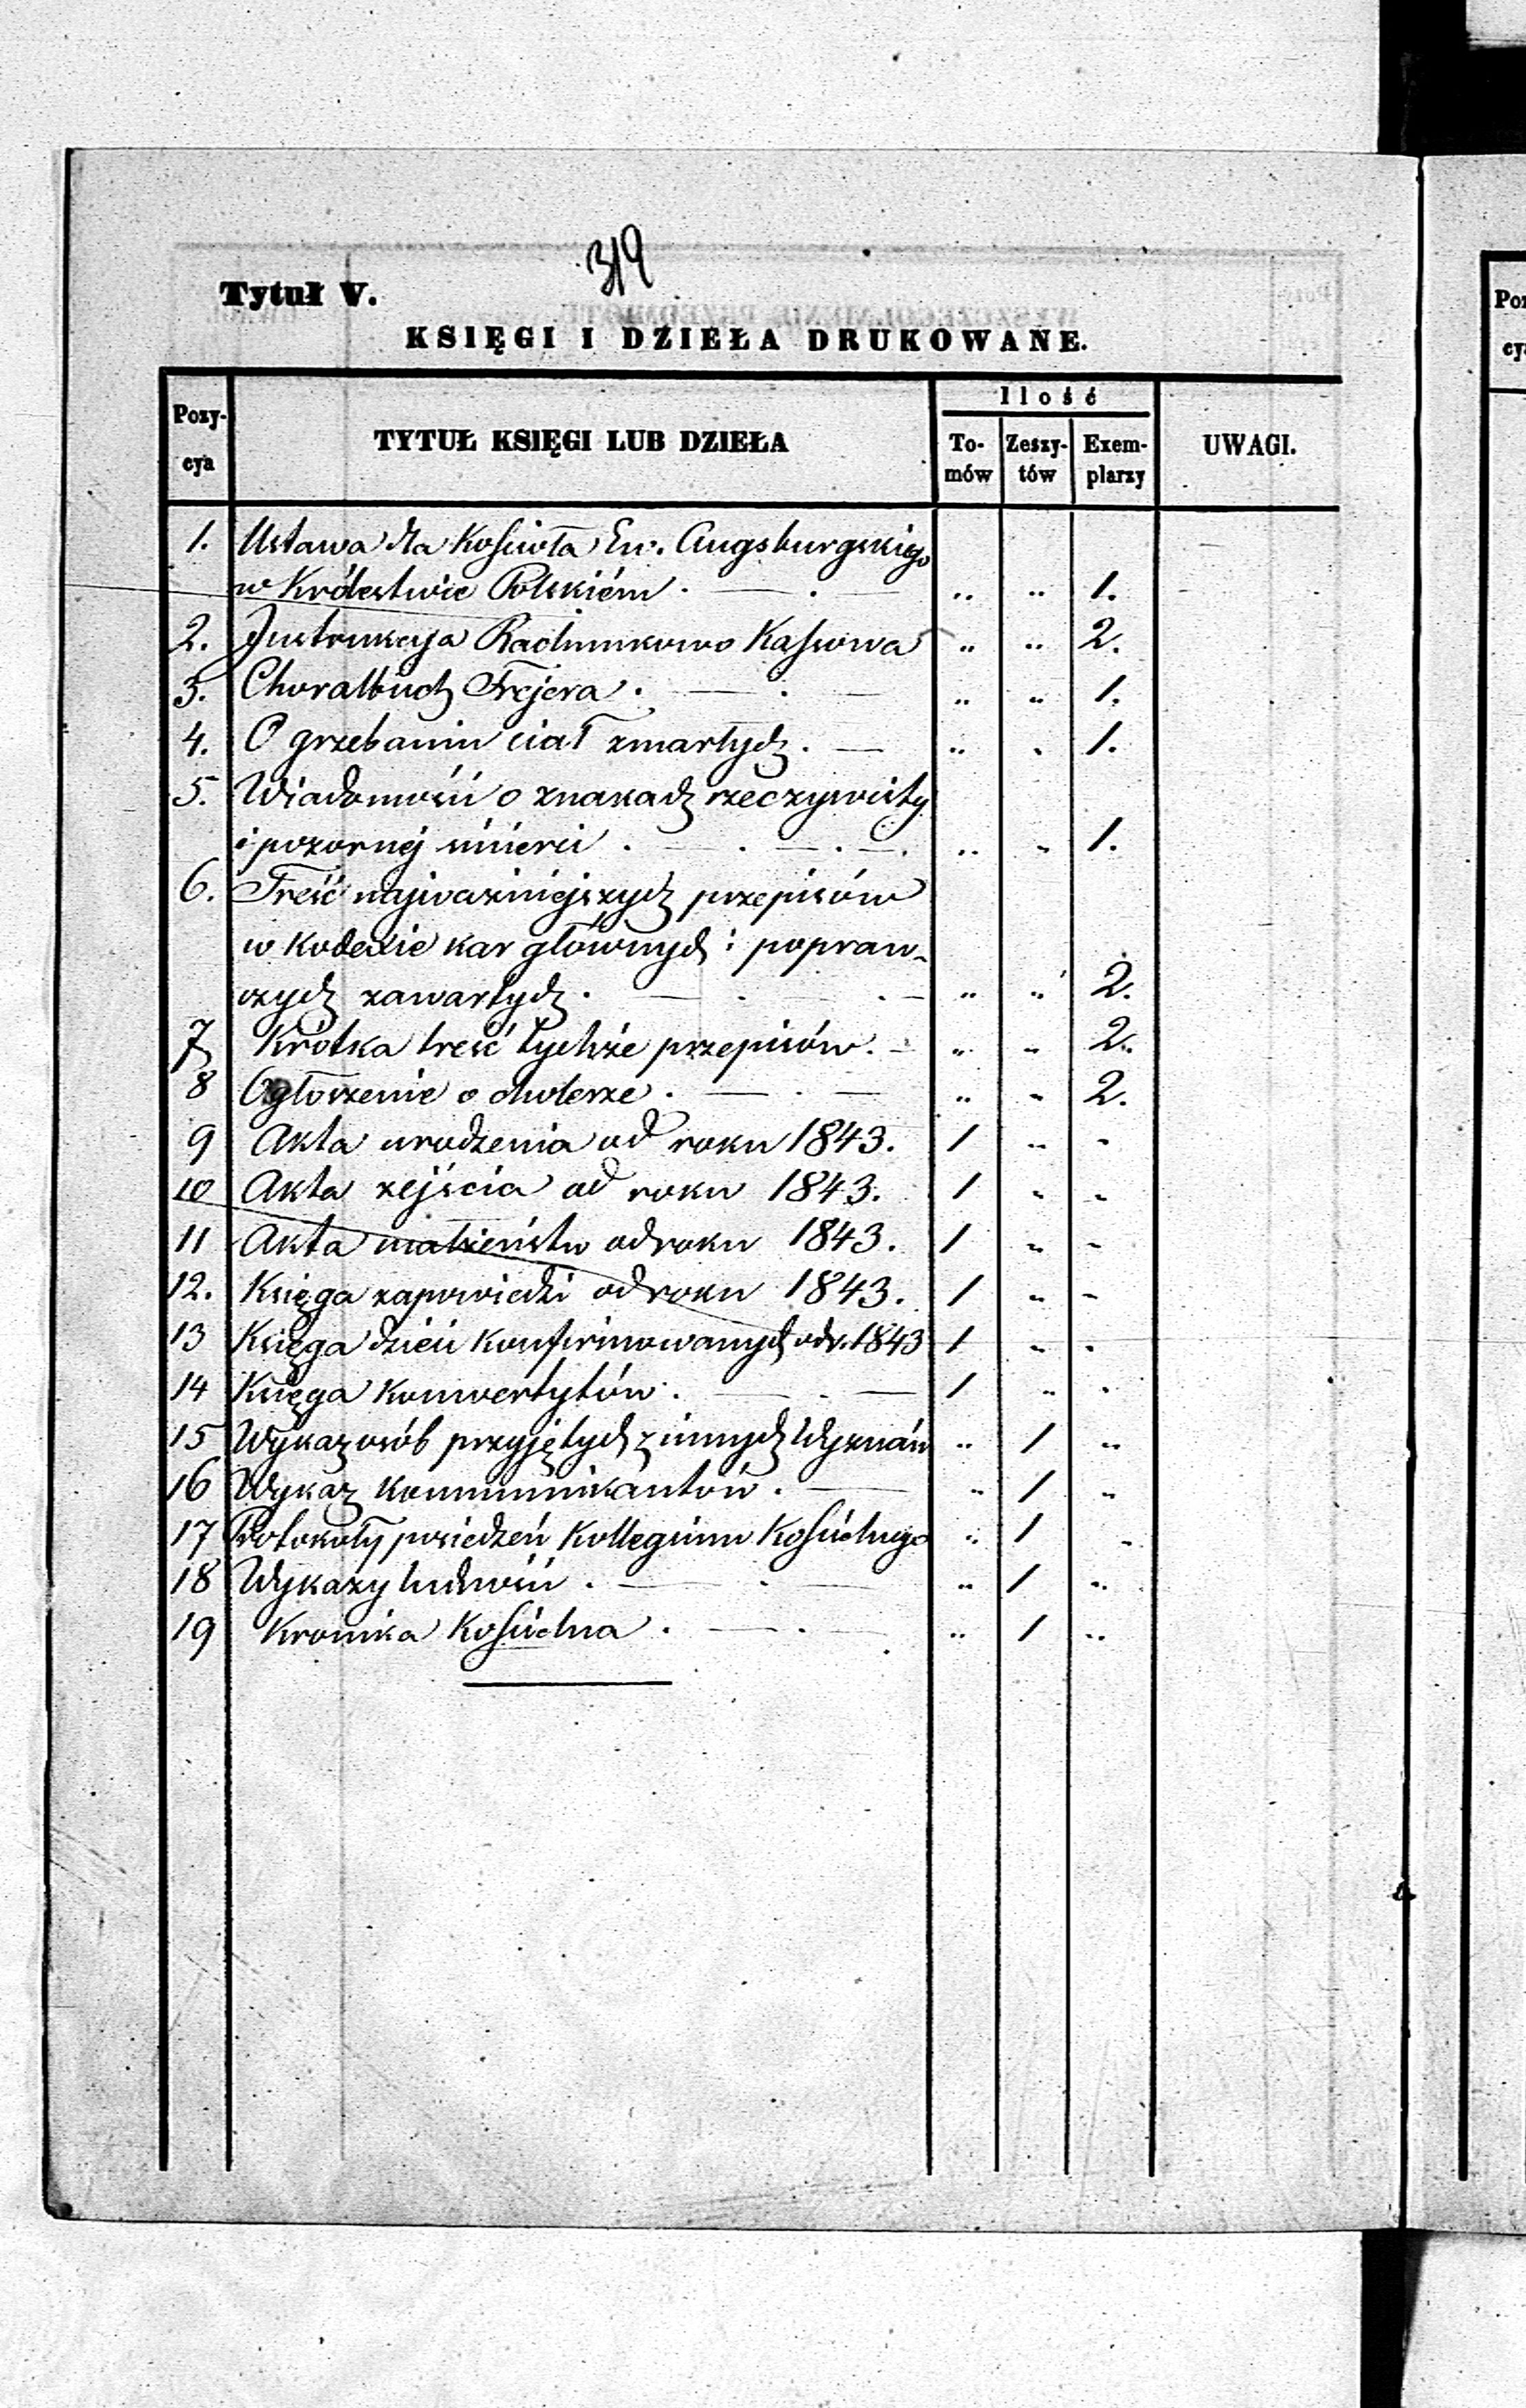 319
Tytuł V.
KSIĘGI I DZIEŁA DRUKOWANE.
Pozy-cya TYTUŁ KSIĘGI LUB DZIEŁA Ilość To-mów Zeszy-tów Exem-plarzy UWAGI.
1. Ustawa dla Kościoła Ew. Augsburgskiego
w Królestwie Polskiém . — . — .. .. 1.
2. Instrukcya Rachunkowo Kassowa .. .. 2.
3. Choralbuch Frejera . — . — .. .. 1.
4. O grzebaniu ciał zmarłych . — .. . 1.
5. Wiadomość o znakach rzeczywisty
i pozornej śmierci . — . — . — . .. .. 1.
6. Treść najważniejszych przepisów
w Kodexie kar głównych i popraw-
czych zawartych . — . — . — .. .. 2.
7 Krótka treść tychże przepisów. — .. .. 2.
8 Ogłoszenie o cholerze . — . — .. .. 2.
9 Akta urodzenia od roku 1843. 1 .. ..
10 Akta zejścia od roku 1843. 1 .. ..
11 Akta małżeństw od roku 1843. 1 .. ..
12. Księga zapowiedzi od roku 1843. 1 .. ..
13 Księga dzieci konfirmowanych od r. 1843 1 .. ..
14 Księga Konwertytów . — . — 1 .. ..
15 Wykaz osób przyjętych z innych Wyznań .. 1 ..
16 Wykaz Kommunikantów . — .. 1 ..
17 Protokoły posiedzeń Kollegium Kościelnego .. 1 ..
18 Wykazy ludności . — . — .. 1 ..
19 Kronika Kościelna . — . — .. 1 ..
Poz
cya